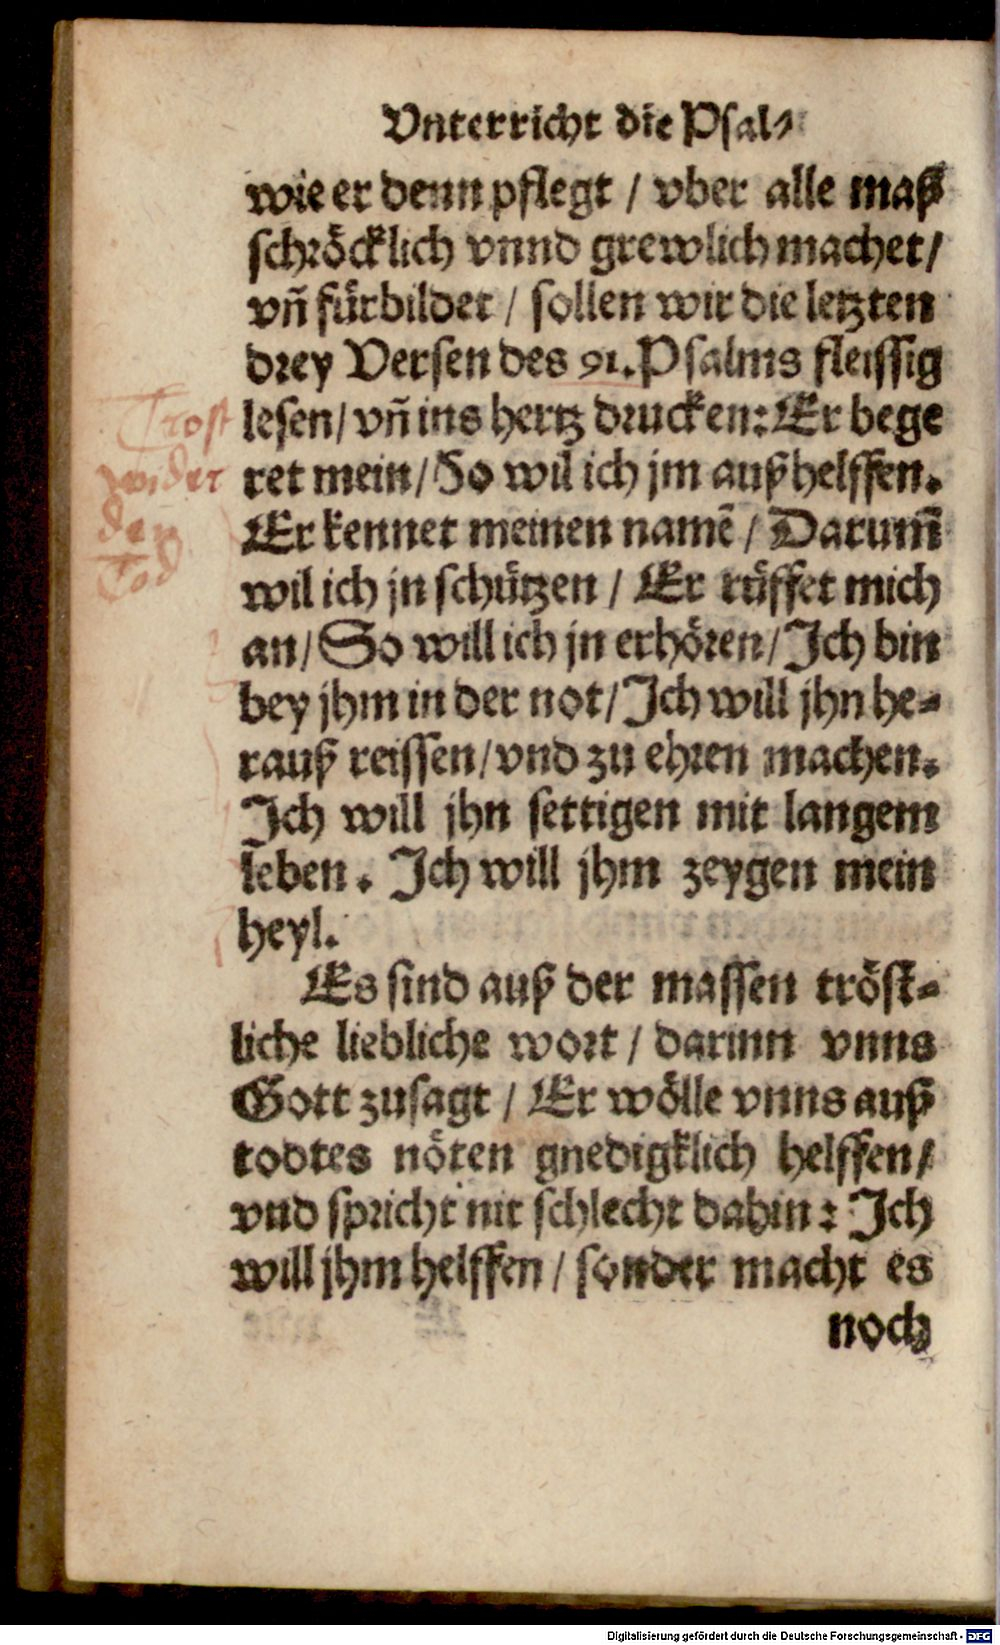 Vnterricht die Psal⸗
wie er denn pflegt / vber alle maß
schröcklich vnnd grewlich machet /
vñ fürbildet / sollen wir die letzten
drey Versen des 91. Psalms fleissig
lesen / vñ ins hertz drucken: Er bege
ret mein / So wil ich jm außhelffen.
Er kennet meinen namē / Darumē
wil ich jn schützen / Er rüffet mich
an / So will ich jn erhören / Ich bin
bey jhm in der not / Ich will jhn he⸗
rauß reissen / vnd zu ehren machen.
Ich will jhn settigen mit langem
leben. Ich will jhm zeygen mein
heyl.
Es sind auß der massen tröst⸗
liche liebliche wort / darinn vnns
Gott zusagt / Er wölle vnns auß
todtes nöten gnedigklich helffen /
vnd spricht nit schlecht dahin: Ich
will jhm helffen / sonder macht es
noch
Trost
wider
den
Tod
Digitalisierung gefördert durch die Deutsche Forschungsgemeinschaft - DFG